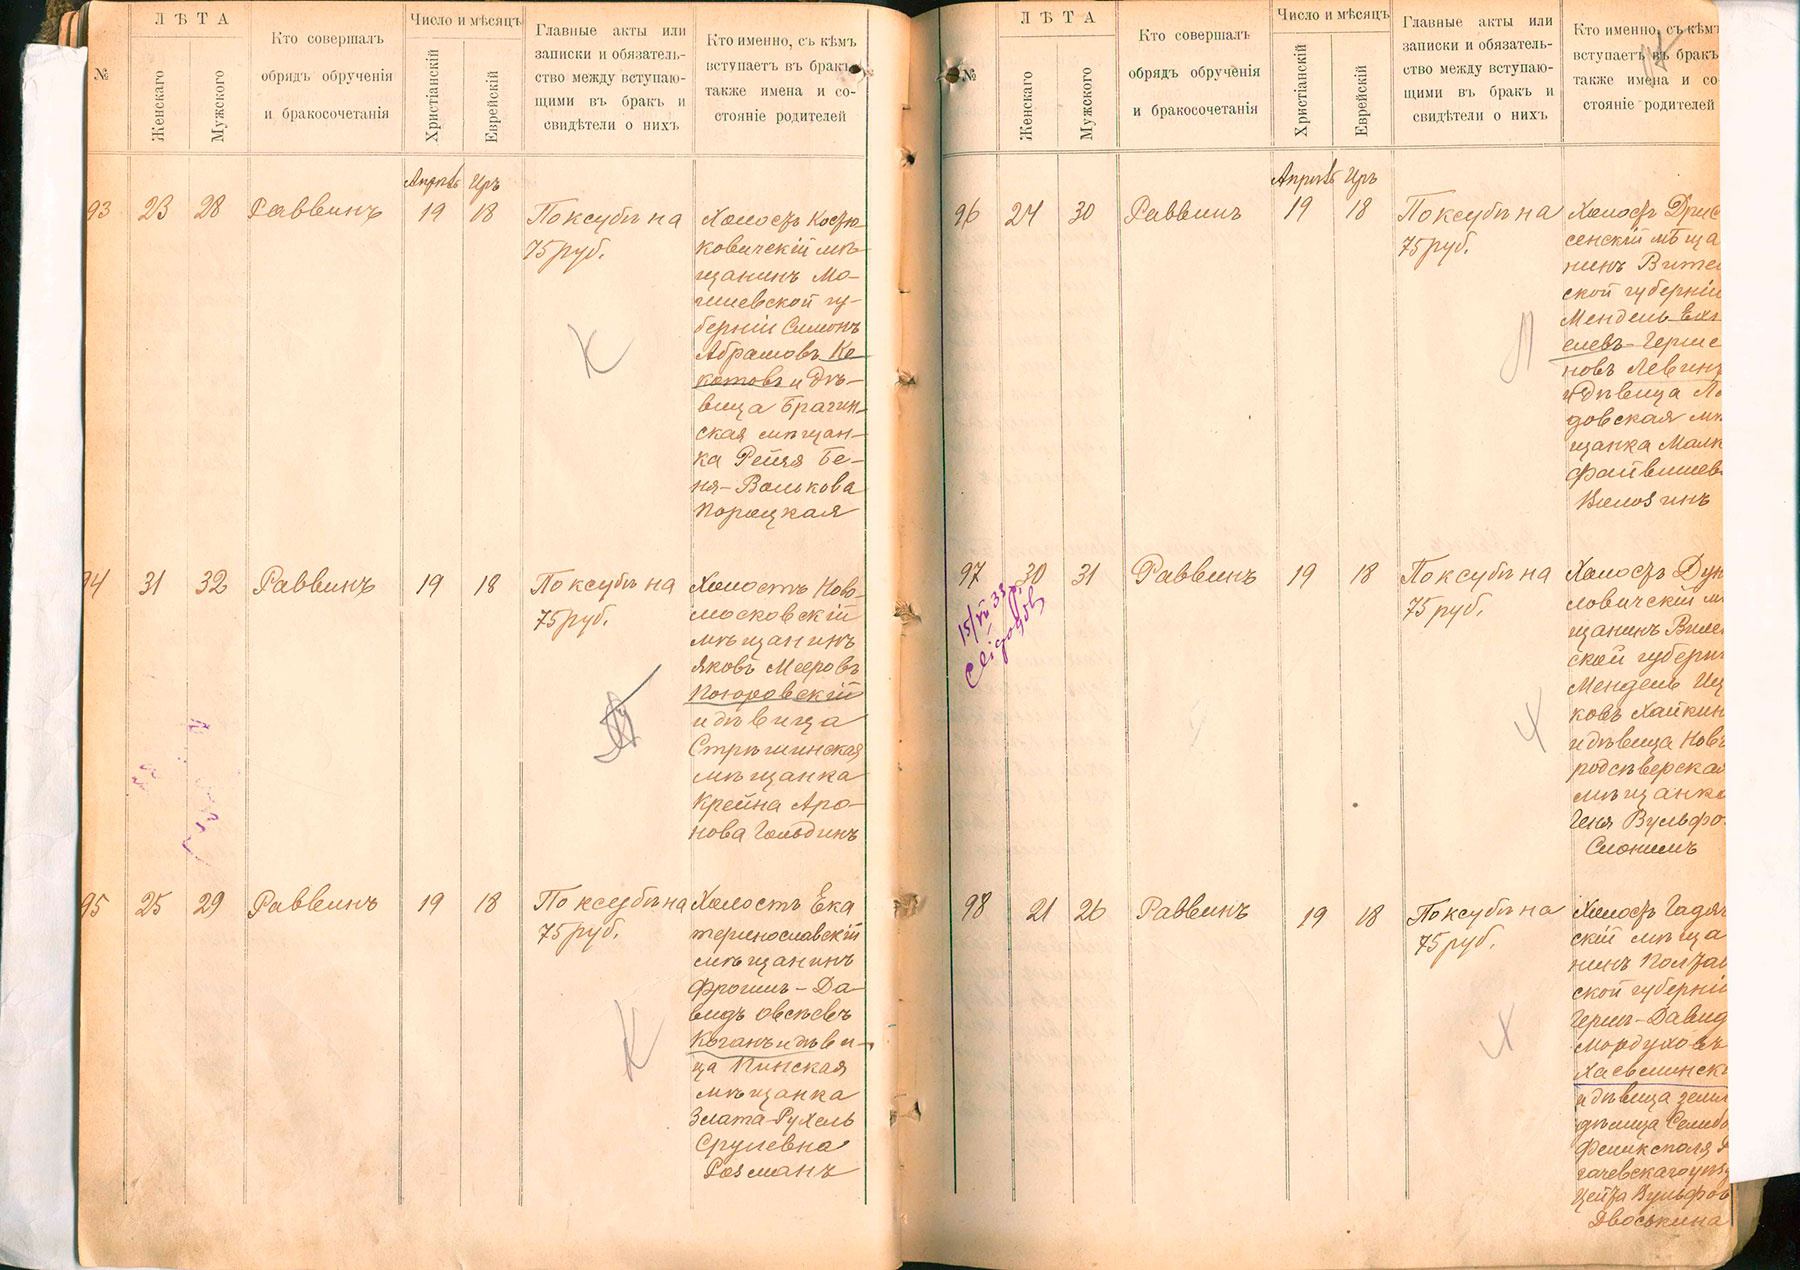 №
ЛѢТА
Женскаго
Мужского
Кто совершалъ
обрядъ обрученія
и бракосочетанія
Число и мѣсяцъ
Христіанскій
Еврейскій
Главные акты или
записки и обязатель-
ство между вступаю-
щими въ бракъ и
свидѣтели о нихъ
Кто именно, съ кѣмъ
вступаетъ въ бракъ
также имена и со-
стояніе родителей
Апрѣль Иръ
93 23 28 Раввинъ 19 18
По ксубѣ на
75 руб.
Холостъ Костю-
ковичскій мѣ-
щанинъ Мо-
гилевской гу-
берніи Симонъ
Абрамовъ Ке
котовъ и дѣ-
вица Брагин-
ская мѣщан-
ка Рейзя Бе-
ня-Волькова
Порецкая
94 31 32 Раввинъ 19 18
По ксубѣ на
75 руб.
Холостъ Ново-
московскій
мѣщанинъ
Яковъ Мееровъ
и дѣвица
Стрѣшинская
мѣщанка
Крейна Аро-
нова Гольдинъ
95 25 29 Раввинъ 19 18
По ксубѣ на
75 руб.
Холостъ Ека
теринославскій
мѣщанинъ
Фроимъ-Да-
видъ Овсѣевъ
Коганъ и дѣви-
ца Пинская
мѣщанка
Злата-Рухель
Срулевна
Розманъ
№
ЛѢТА
Женскаго
Мужского
Кто совершалъ
обрядъ обрученія
и бракосочетанія
Число и мѣсяцъ
Христіанскій
Еврейскій
Главные акты или
записки и обязатель-
ство между вступаю-
щими въ бракъ и
свидѣтели о нихъ
Кто именно, съ кѣмъ
вступаетъ въ бракъ
также имена и со
стояніе родителей
Апрѣль Иръ
96 24 30 Раввинъ 19 18
По ксубѣ на
75 руб.
Холостъ Дрис
сенскій мѣща
нинъ Витеб
ской губерніи
Мендель Ехі
елевъ-Герше
новъ Левинъ
и дѣвица Ля
довская мѣ
щанка Малк
Файвишев
Волозинъ
97 30 31 Раввинъ 19 18
По ксубѣ на
75 руб.
Холостъ Дун
ловичскій мѣ
щанинъ Вилен
ской губерн
Мендель Иц
ковъ Хайкин
и дѣвица Новг
родсѣверская
мѣщанка
Геня Вульфо
Слонимъ
98 21 26 Раввинъ 19 18
По ксубѣ на
75 руб.
Холостъ Гадяч
скій мѣща
нинъ Полтав
ской губерніи
Герш-Давид
Мордуховъ
и дѣвица земл
дѣлица
гачевскаго уѣзд
Цейта Вульфов
Двоскина